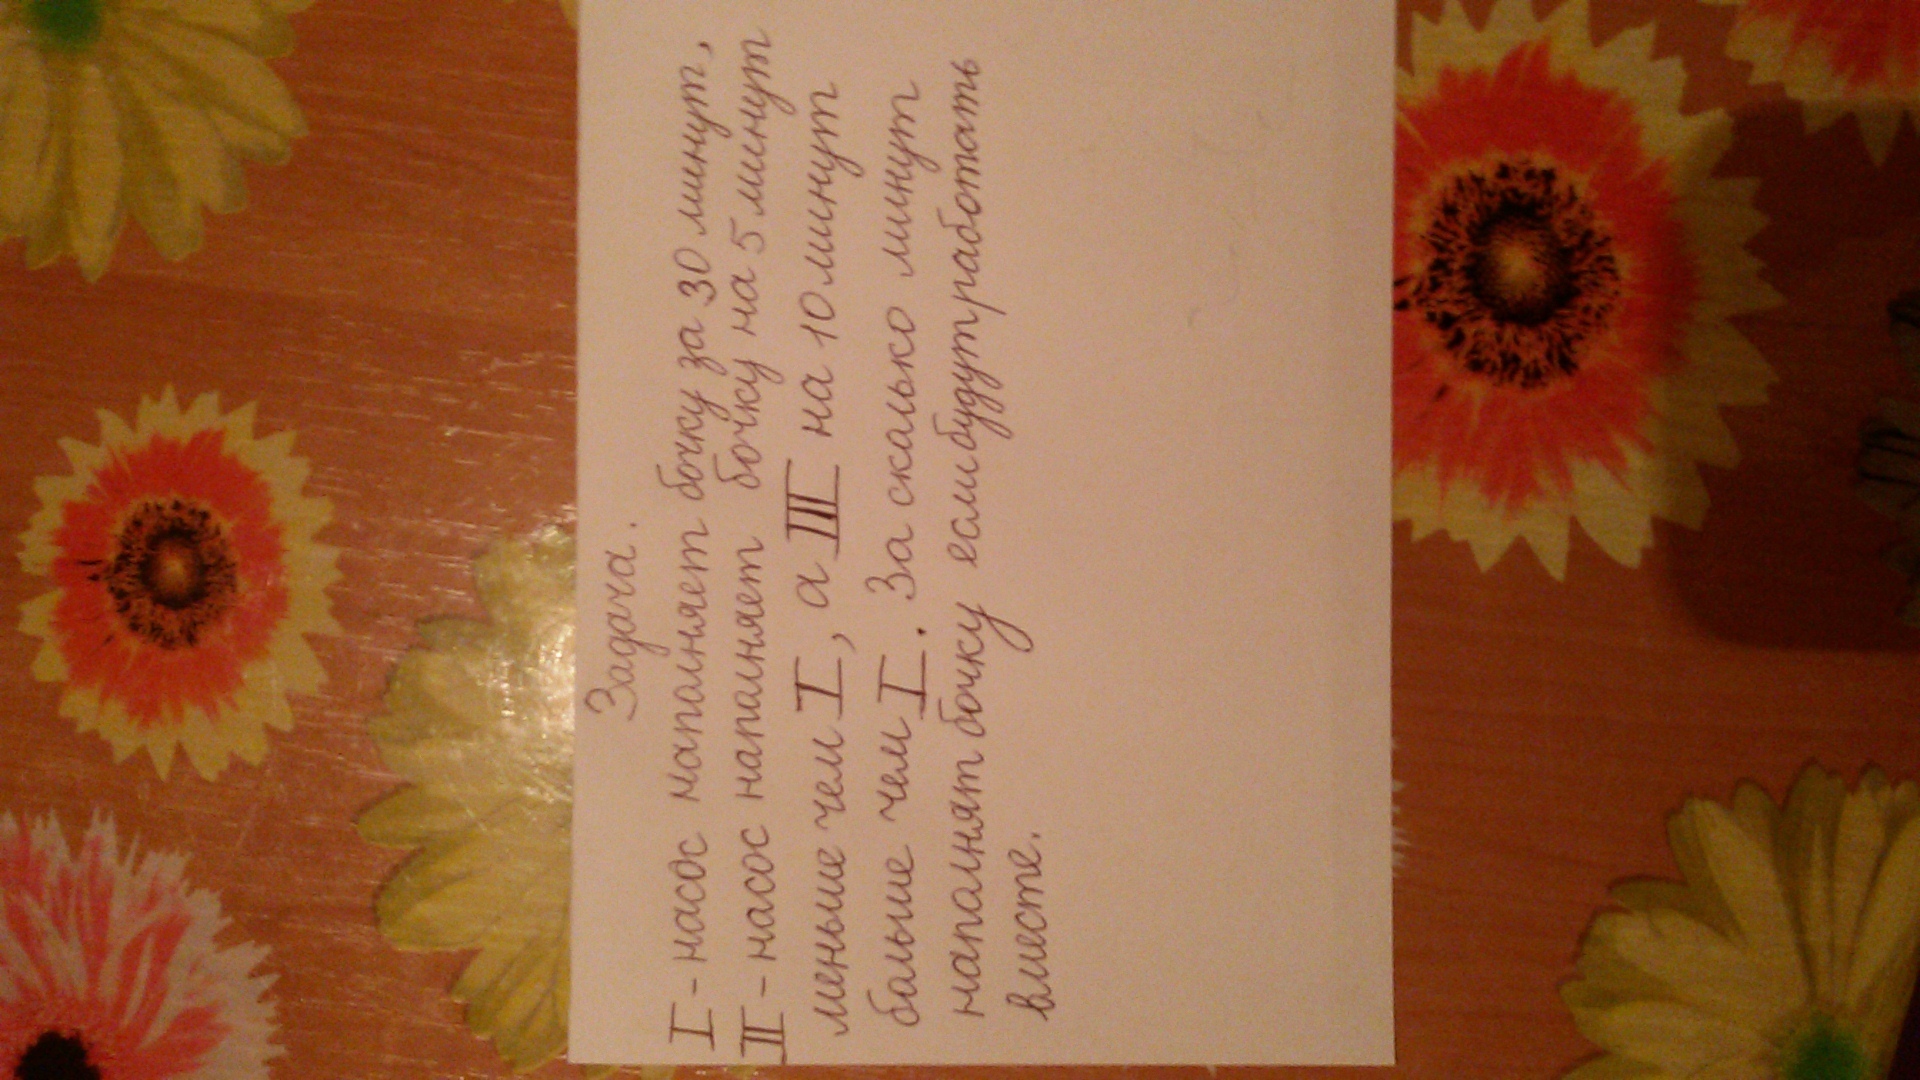 Задача.
I - насос наполняет бочку за 30 минут,
II - насос наполняет бочку на 5 минут
меньше чем I, а III на 10 минут
больше чем I. За сколько минут
наполнят бочку если будут работать
вместе.